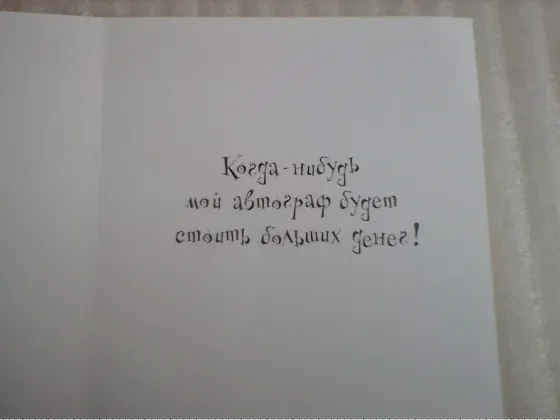 Когда-нибудь
мой автограф будет
стоить больших денег!